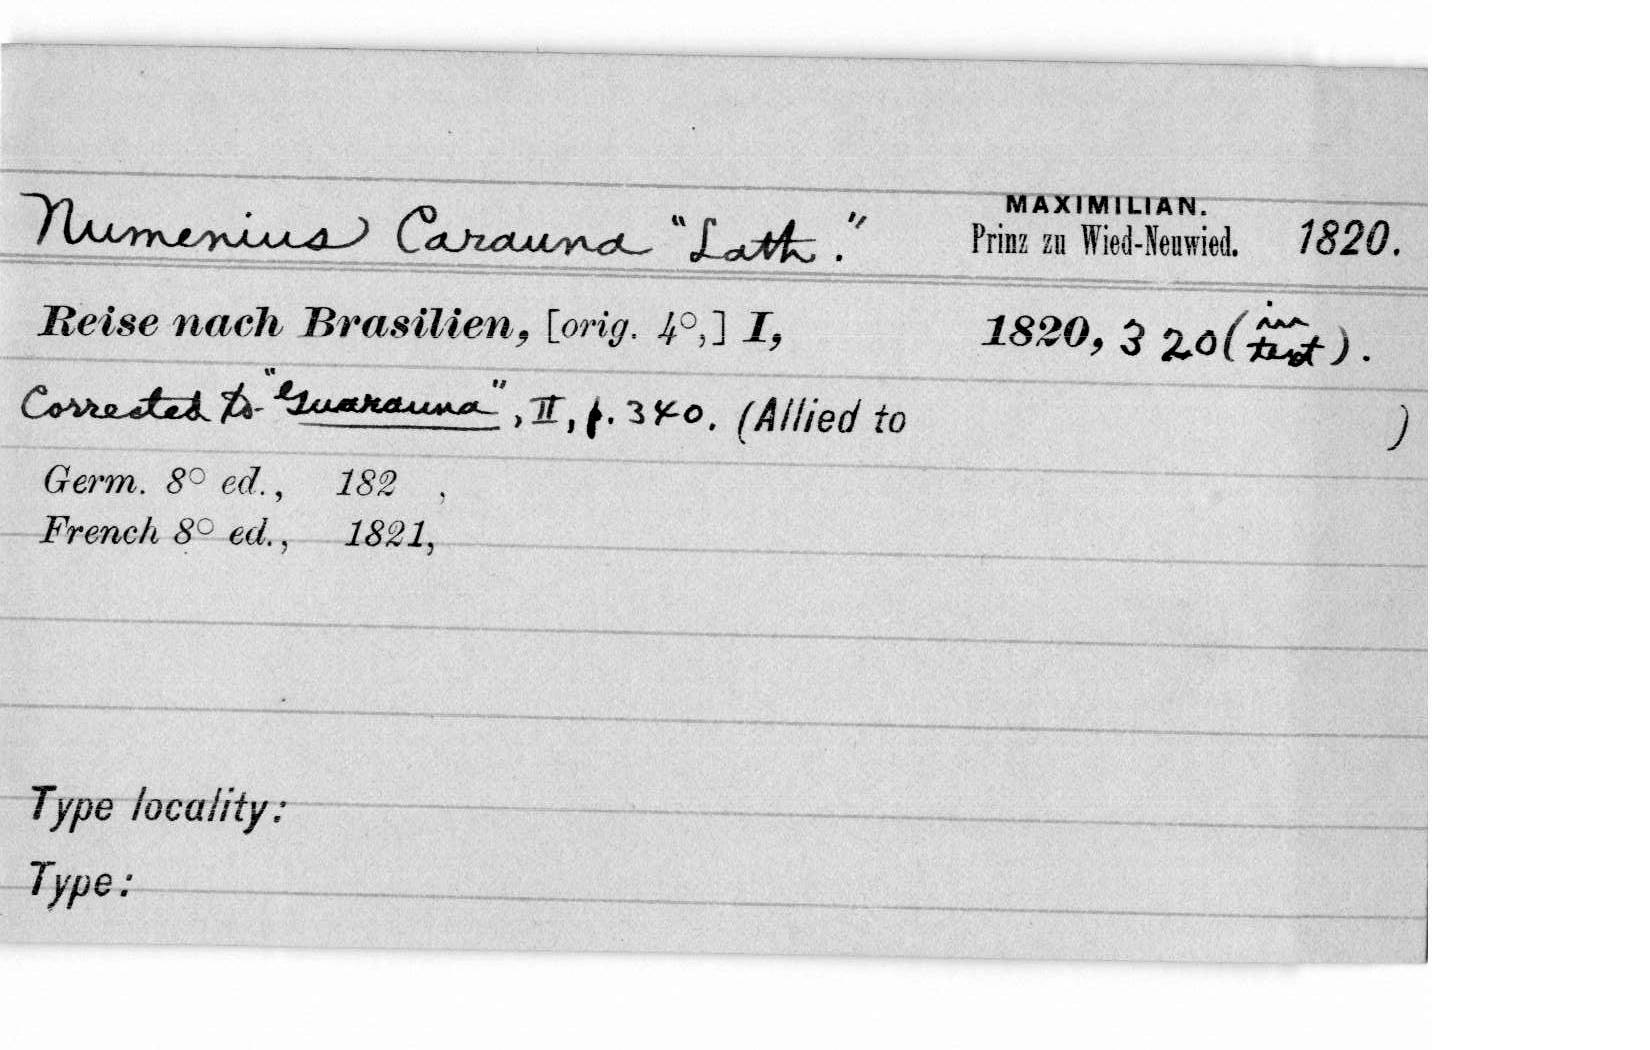 Numenius Carauna "Lath." MAXIMILIAN. Prinz zu Wied-Neuwied. 1820.
Reise nach Brasilien, [orig. 4º,] I, 1820, 320 (in text).
Corrected to "Guarauna", II, p. 340. (Allied to )
Germ. 8º ed., 182 ,
French 8º ed., 1821,
Type locality:
Type: